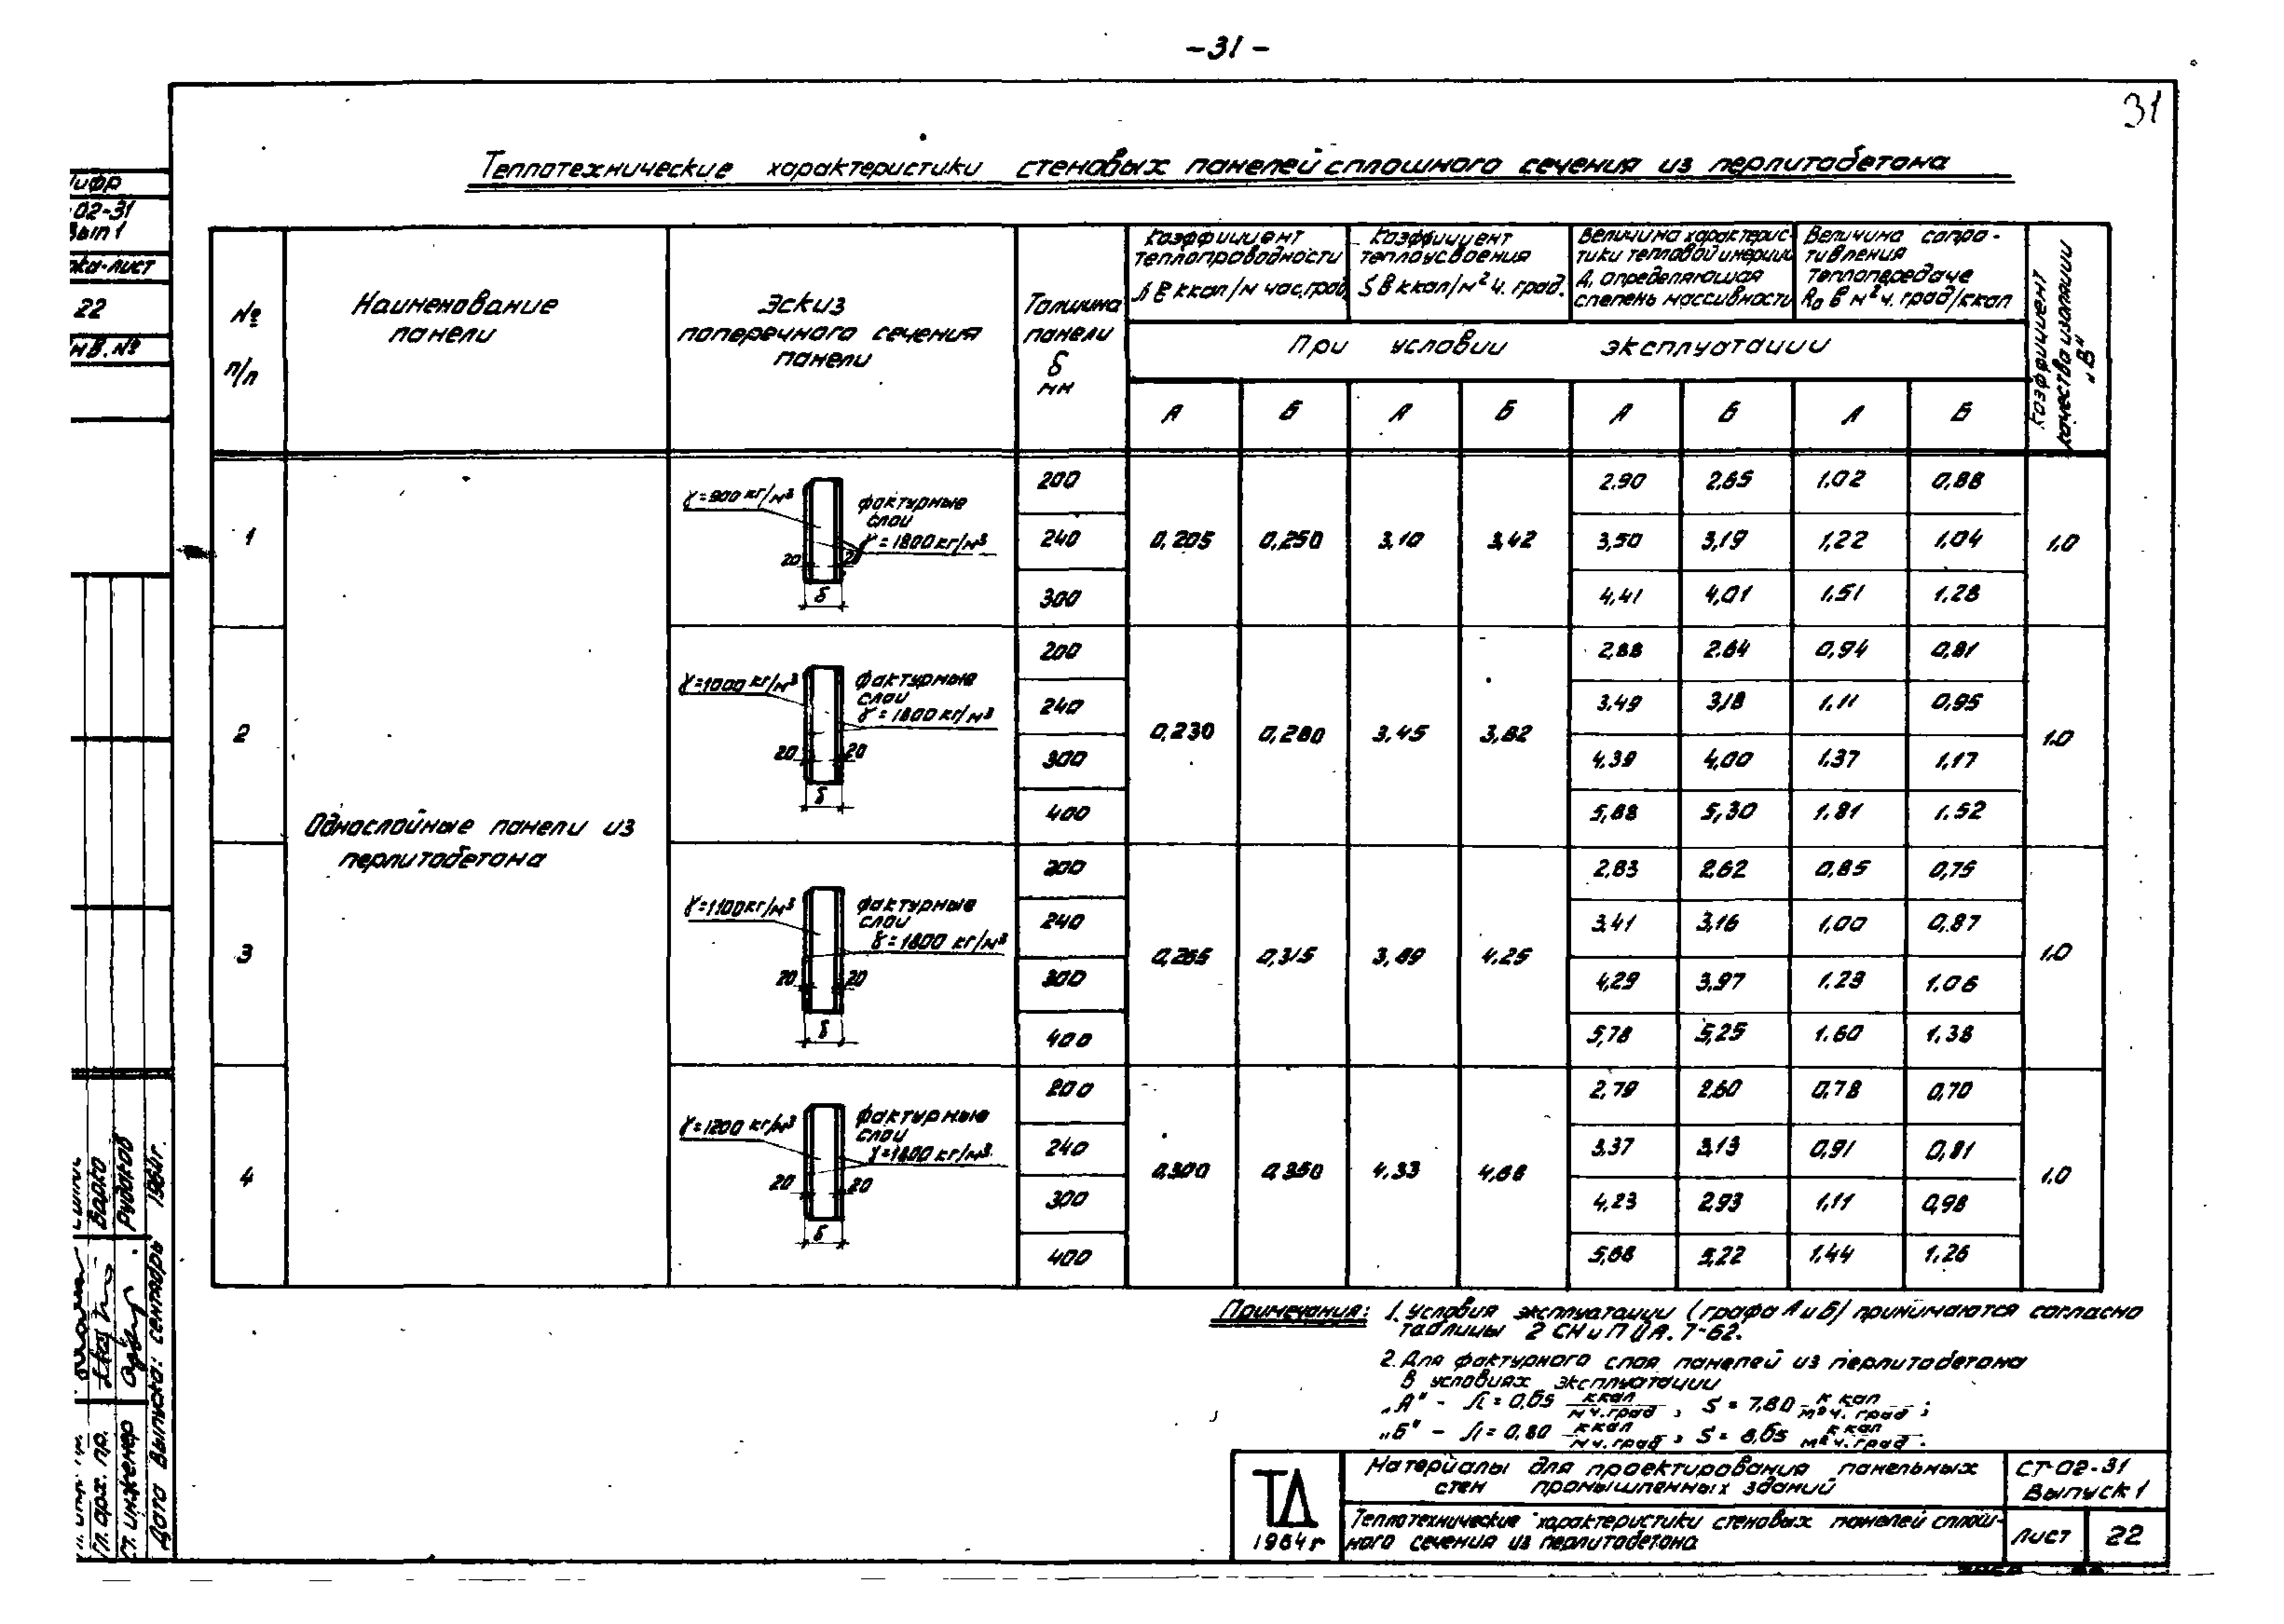 -31-
31
Теплотехнические характеристики стеновых панелей сплошного сечения из перлитобетона
№ п/п
Наименование панели
Эскиз поперечного сечения панели
Толщина панели δ мм
Коэффициент теплопроводности λ в ккал/м час.град
Коэффициент теплоусвоения S в ккал/м² ч. град.
Величина характерис-
тики тепловой инерции
Д, определяющая
степень массивности
Величина сопро-
тивления
теплопередаче
R₀ в м² ч. град/ккал
Коэффициент качества изоляции „В"
При условии эксплуатации
А Б А Б А Б А Б
1
Однослойные панели из перлитобетона
γ=900 кг/м³
фактурные слои
γ=1800 кг/м³
20
δ
0,205 0,250 3,10 3,42
200 2.90 2,65 1,02 0,88
240 3,50 3,19 1,22 1,04
300 4,41 4,01 1,51 1,28
1,0
2
γ=1000 кг/м³
фактурные слои
γ=1800 кг/м³
20 20
δ
0,230 0,280 3,45 3,82
200 2,88 2.64 0,94 0,81
240 3.49 3,18 1,11 0,95
300 4,39 4,00 1,37 1,17
400 5,88 5,30 1.81 1.52
1.0
3
γ=1100 кг/м³
фактурные слои
γ=1800 кг/м³
20 20
δ
0,265 0,315 3,89 4.25
200 2,83 2,62 0,85 0,75
240 3.41 3,16 1,00 0,87
300 4,29 3,97 1.23 1.06
400 5,78 5,25 1.60 1,38
1,0
4
γ=1200 кг/м³
фактурные слои
γ=1800 кг/м³
20 20
δ
0,300 0,350 4,33 4,68
200 2,79 2,60 0,78 0,70
240 3,37 3,13 0,91 0,81
300 4,23 2,93 1,11 0,98
400 5,68 5,22 1,44 1,26
1,0
Примечания: 1. Условия эксплуатации (графа А и Б) принимаются согласно
таблицы 2 СНиП II А. 7-62.
2. Для фактурного слоя панелей из перлитобетона
в условиях эксплуатации
„А" - λ = 0,65 ккал/м ч.град, S = 7,80 ккал/м² ч. град;
„Б" - λ = 0,80 ккал/м ч.град, S = 8,65 ккал/м² ч. град.
ТД
1964г
Материалы для проектирования панельных
стен промышленных зданий
СТ-02-31
Выпуск 1
Теплотехнические характеристики стеновых панелей сплош-
ного сечения из перлитобетона
Лист 22
02-31
Вып 1
22
Гл. арх. пр.
Ст. инженер
Варго
Рудаков
Дата выпуска: сентябрь 1964г.